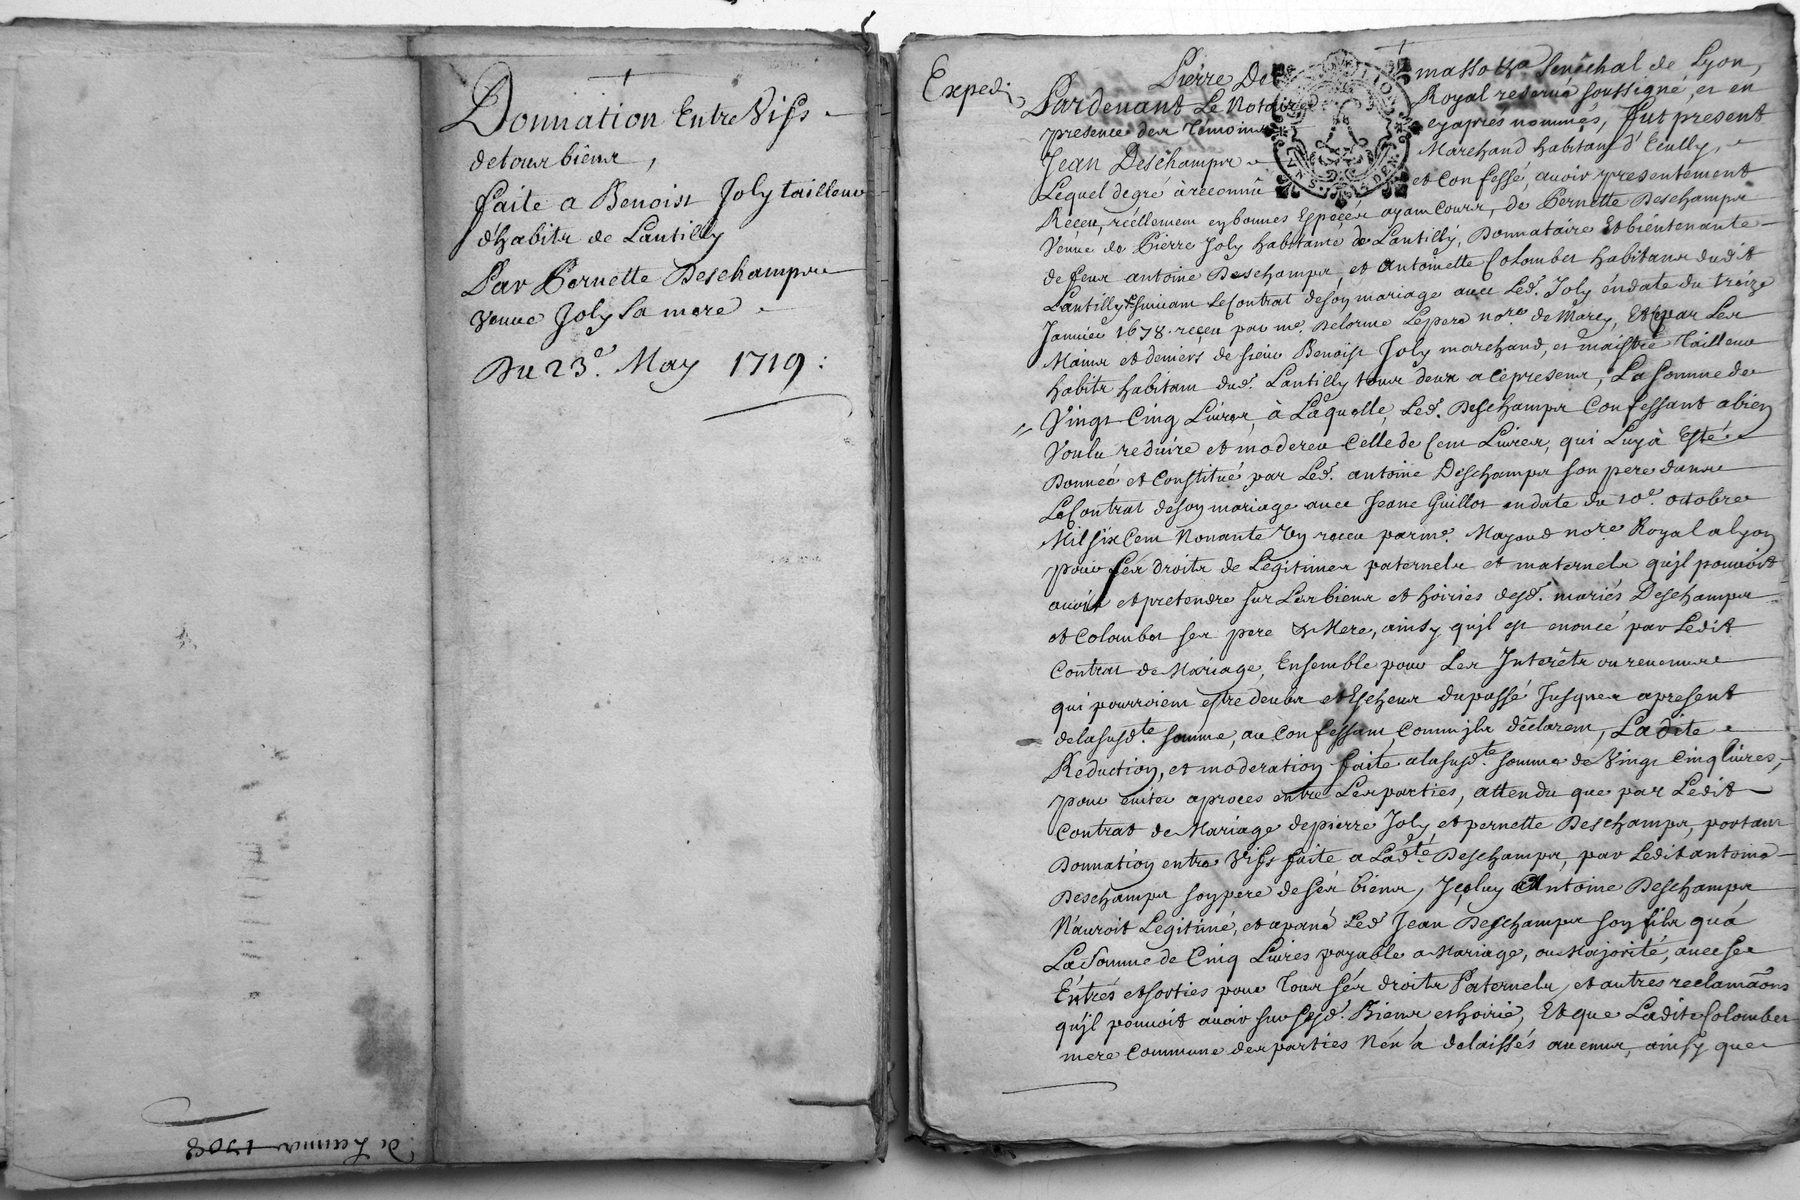 Donnation Entre Vifs
detous biens,
faite a Benoist Joly tailleur
d'habits de Lantilly
Par Pernette Deschamps
veuve Joly Sa mere
Du 23.e May 1719:
1708
Expedi
Pierre De masso Senechal de Lyon,
Pardevant Le Notaire Royal reservé soussigné, et en
presence des Temoins cyaprés nommés, fut present
Jean Deschamps Marchand habitant d'Ecully,
Lequel degré à reconnu et confessé, avoir presentement
Receu, réellement en bonnes Especes ayant cours, de Pernette Deschamps
Veuve de Pierre Joly habitante de Lantilly, Donnataire et bientenante
de feus antoine Deschamps, et Antoinette Colombet habitans dudit
Lantilly suivant Le Contrat de son mariage avec Led. Joly en date du treize
Janvier 1678. receu par me. Delorme Lepere no.re de Marcy, Et par Les
Mains et deniers de sieur Benoist Joly marchand, et maistre Tailleur
habits habitant dud. Lantilly tous deux a cepresens, La Somme de
Vingt Cinq Livres, à Laquelle, Led. Deschamps Confessant a bien
Voulu reduire et moderer Celle de Cent Livres, qui Luy à Esté
Donnée et Constitué par Led. antoine Deschamps son pere dans
Le Contrat de son mariage avec Jeane Guillot en date du 10.e octobre
Mil six Cent Nonante Un receu par me. Mayoud no.re Royal a Lyon
pour Ses droits de Legitimes paternels et maternels qu'jl pouvoit
avoir et pretendre sur Les biens et hoiries desd. mariés Deschamps
et Colombet ses pere & Mere, ainsy qu'jl est enoncé par Ledit
Contrat de Mariage, Ensemble pour Les Interêts ou revenus
qui pourroient estre deubs et Escheus du passé Jusques apresent
de la susd.te somme, au Confessant, Comme jls déclarent, La dite
Reduction, et moderation faite a la susd.te somme de Vingt Cinq livres,
pour eviter a proces entre Les parties, attendu que par Ledit
Contrat de Mariage de pierre Joly, et pernette Deschamps, portant
Donnation entre Vifs faite a Lad.te Deschamps, par Ledit antoine
Deschamps son pere de Ses biens, Jceluy Antoine Deschamps
N'auroit Legitimé, et apané Led. Jean Deschamps son fils qu'a
La Somme de Cinq Livres payable a Mariage, ou Majorité, avec Ses
Entrés et sorties pour Tous Sés droits Paternels, et autres reclamaõns
qu'jl pouvoit avoir sur Sesd. Biens et hoirie, Et que Ladite Colombet
mere Commune des parties N'en'à delaissés aucuns, ainsy que